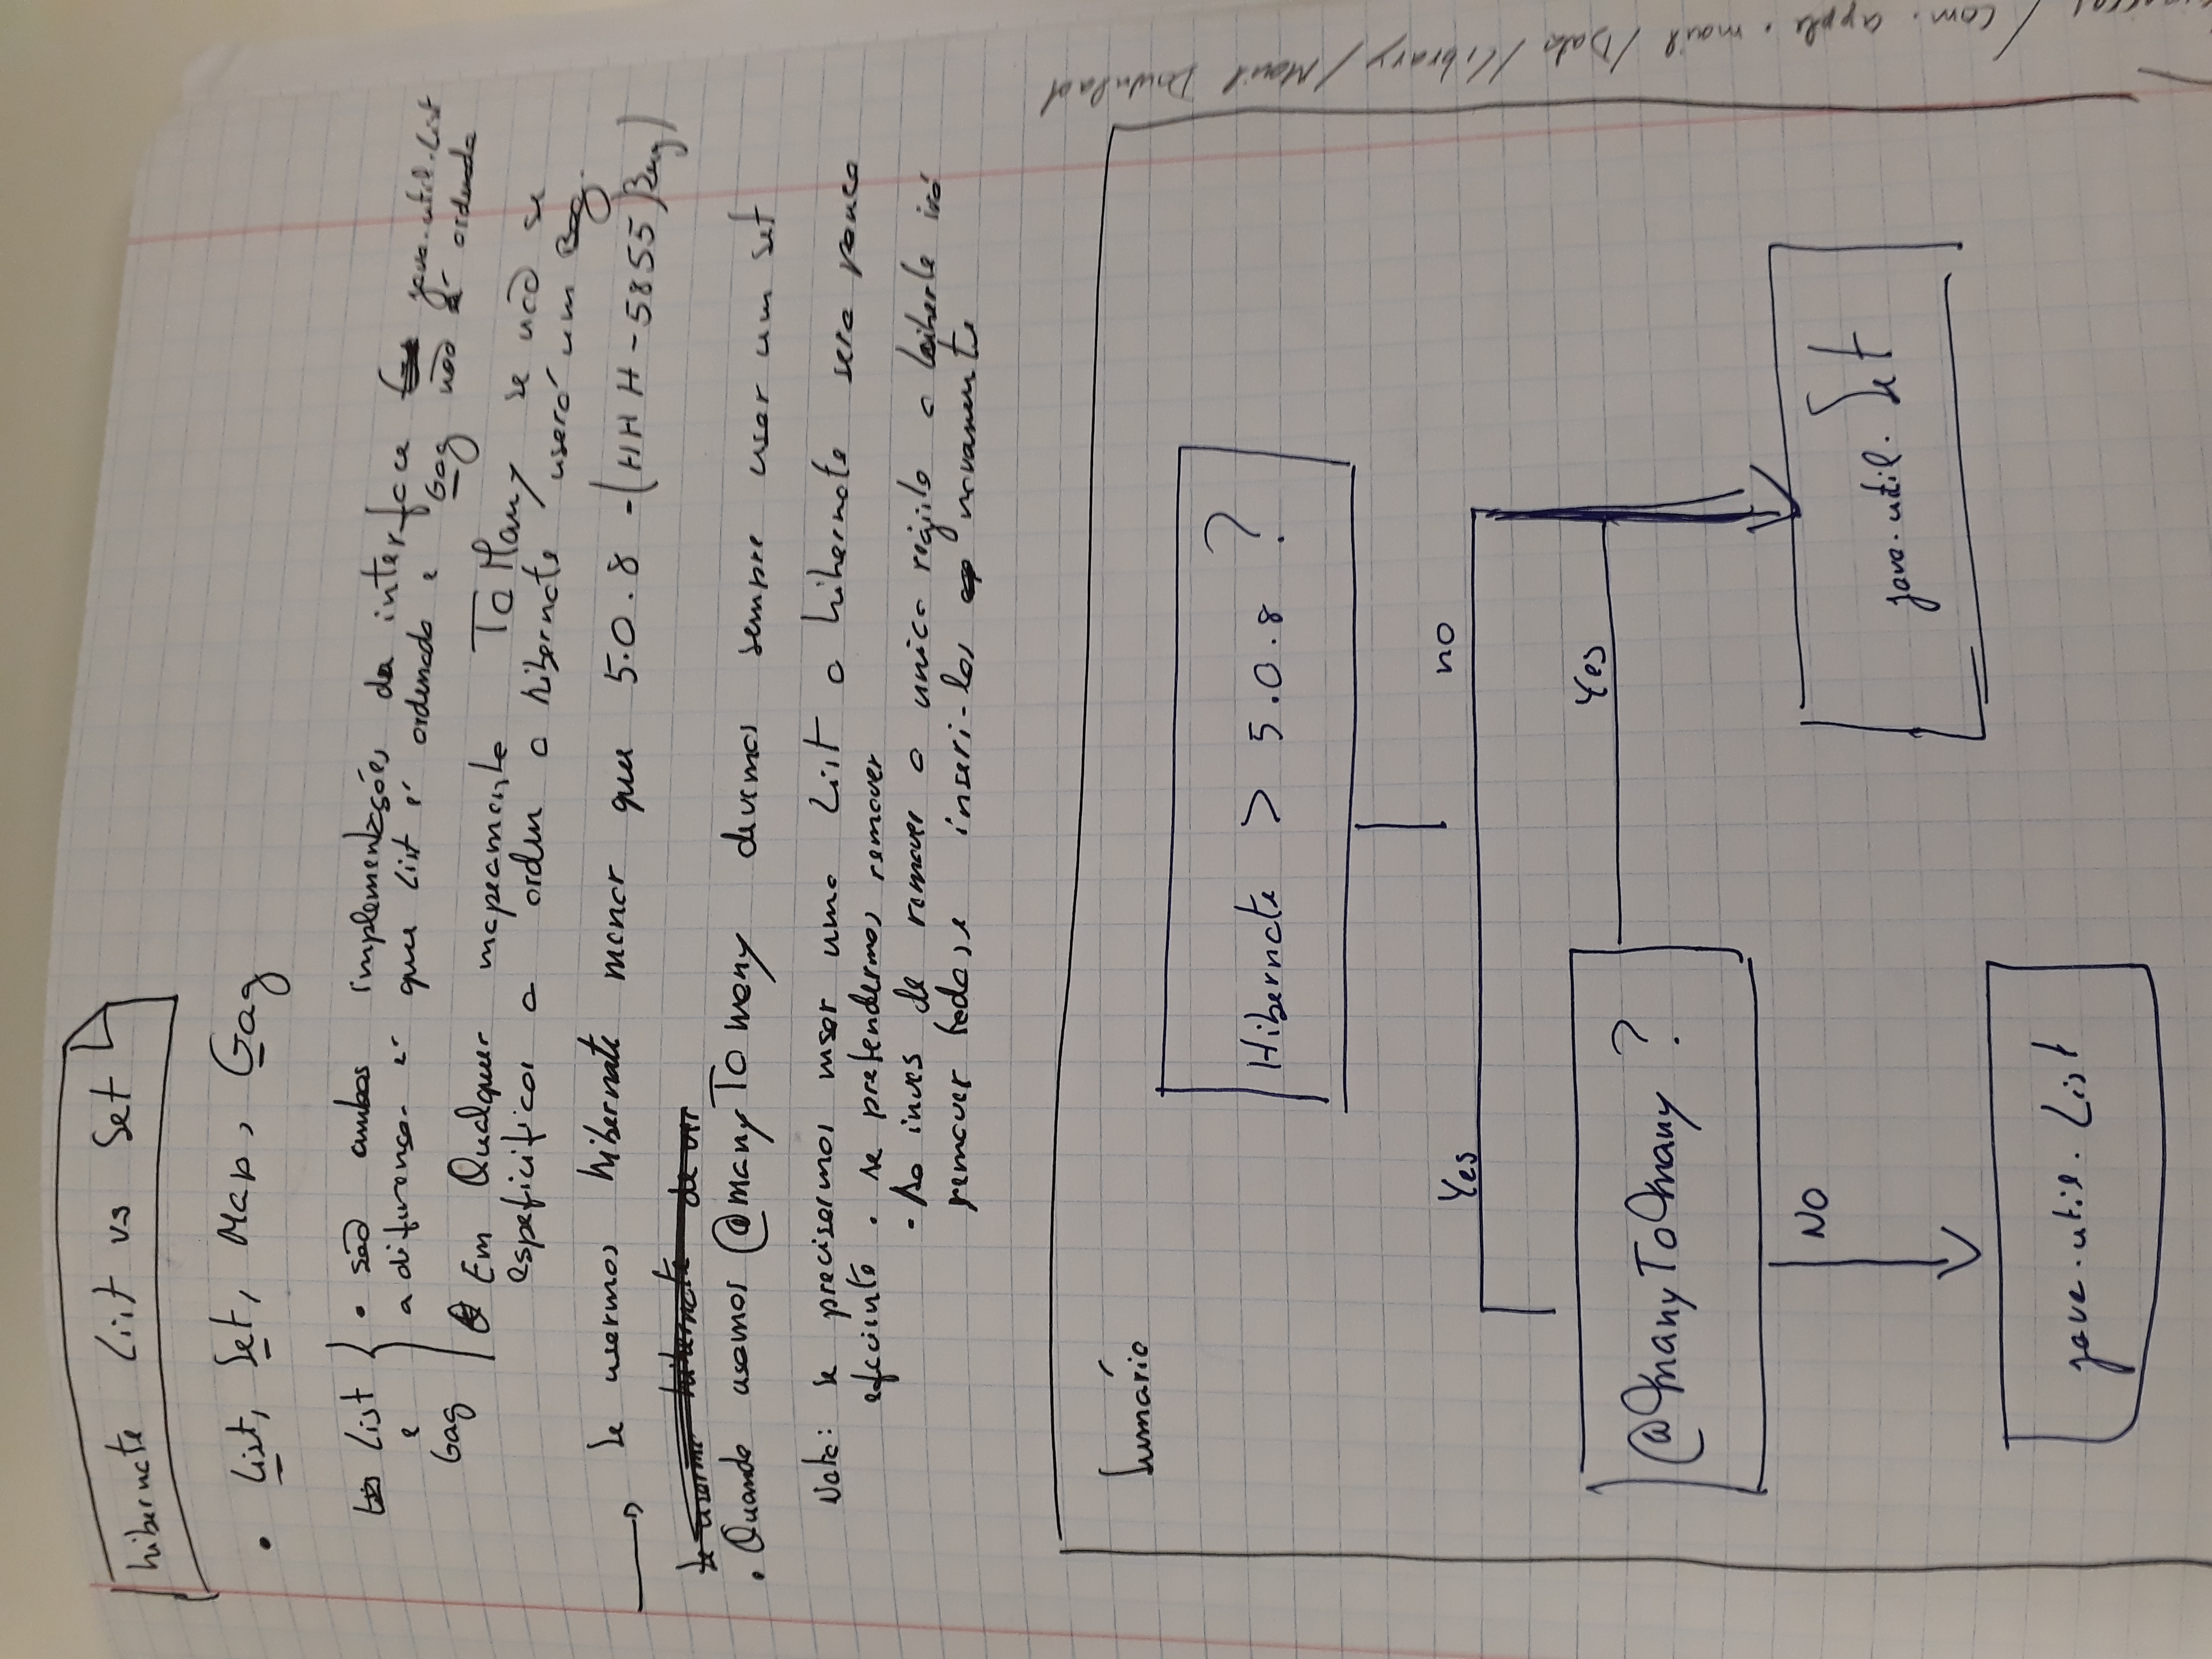 hibernate List vs Set
• List, Set, Map, Gag
List { • são ambas implementações da interface java.util.List
e
a diferença é que List é ordenado e Gag não é ordenada
Gag
Em Qualquer mapeamento ToMany se não se
espeficificar a ordem o hibernate userá um Bag.
→ Se usermos hibernate menor que 5.0.8 - (HHH-5855 Bug)
Se usarmo hibernate de ver
• Quando usamos @manyTo many devemos sempre usar um set
Nota: se precisarmos usar uma List o hibernate sera pouco
efeciente • se pretendermos remover
• Ao inves de remover o unico o irá
remover todos e inseri-los novamente
Sumário
Hibernate > 5.0.8 ?
Yes no
Yes
@ManyToMany ?
NO
java.util.Set
java.util.List
/com.apple.mail/Data/Library/Mail Downlad